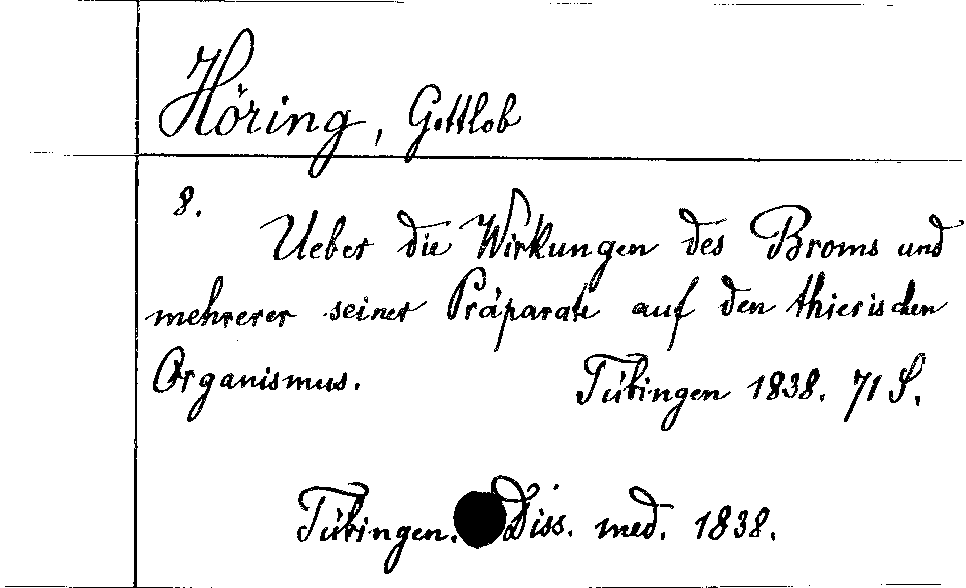 Höring, Gottlob
8.
Ueber die Wirkungen des Broms und
mehrerer seiner Präparate auf den thierischen
Organismus. Tübingen 1838. 71 S.
Tübingen. Diss. med. 1838.